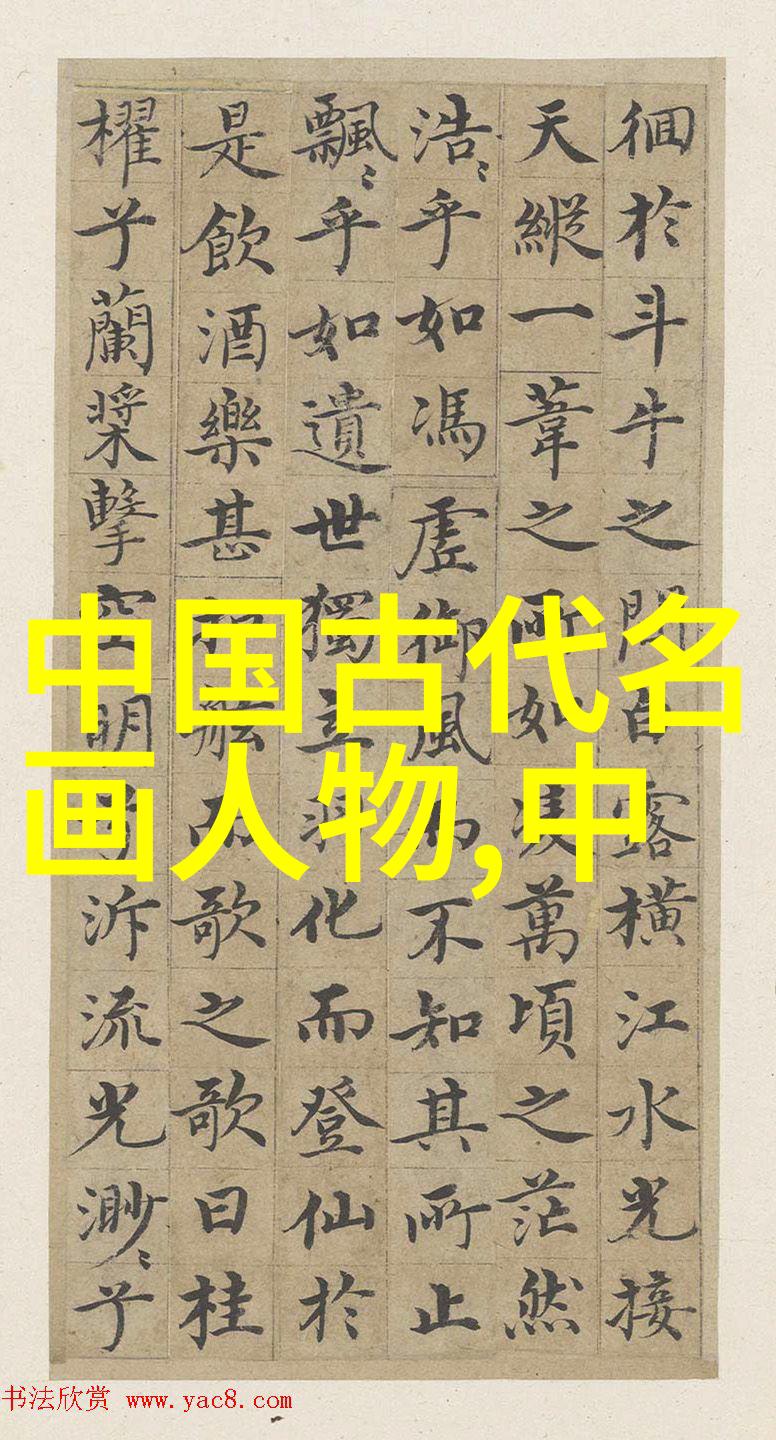 徊於斗牛之間白露橫江水光接
天縱一葦之所如凌萬頃之茫然
浩〻乎如馮虛御風而不知其所止
飄〻乎如遺世獨立羽化而登仙於
是飲酒樂甚扣舷而歌之歌曰桂
櫂兮蘭槳擊空明兮泝流光渺〻兮
中国古代名
画人物,中
书法欣赏 www.yac8.com